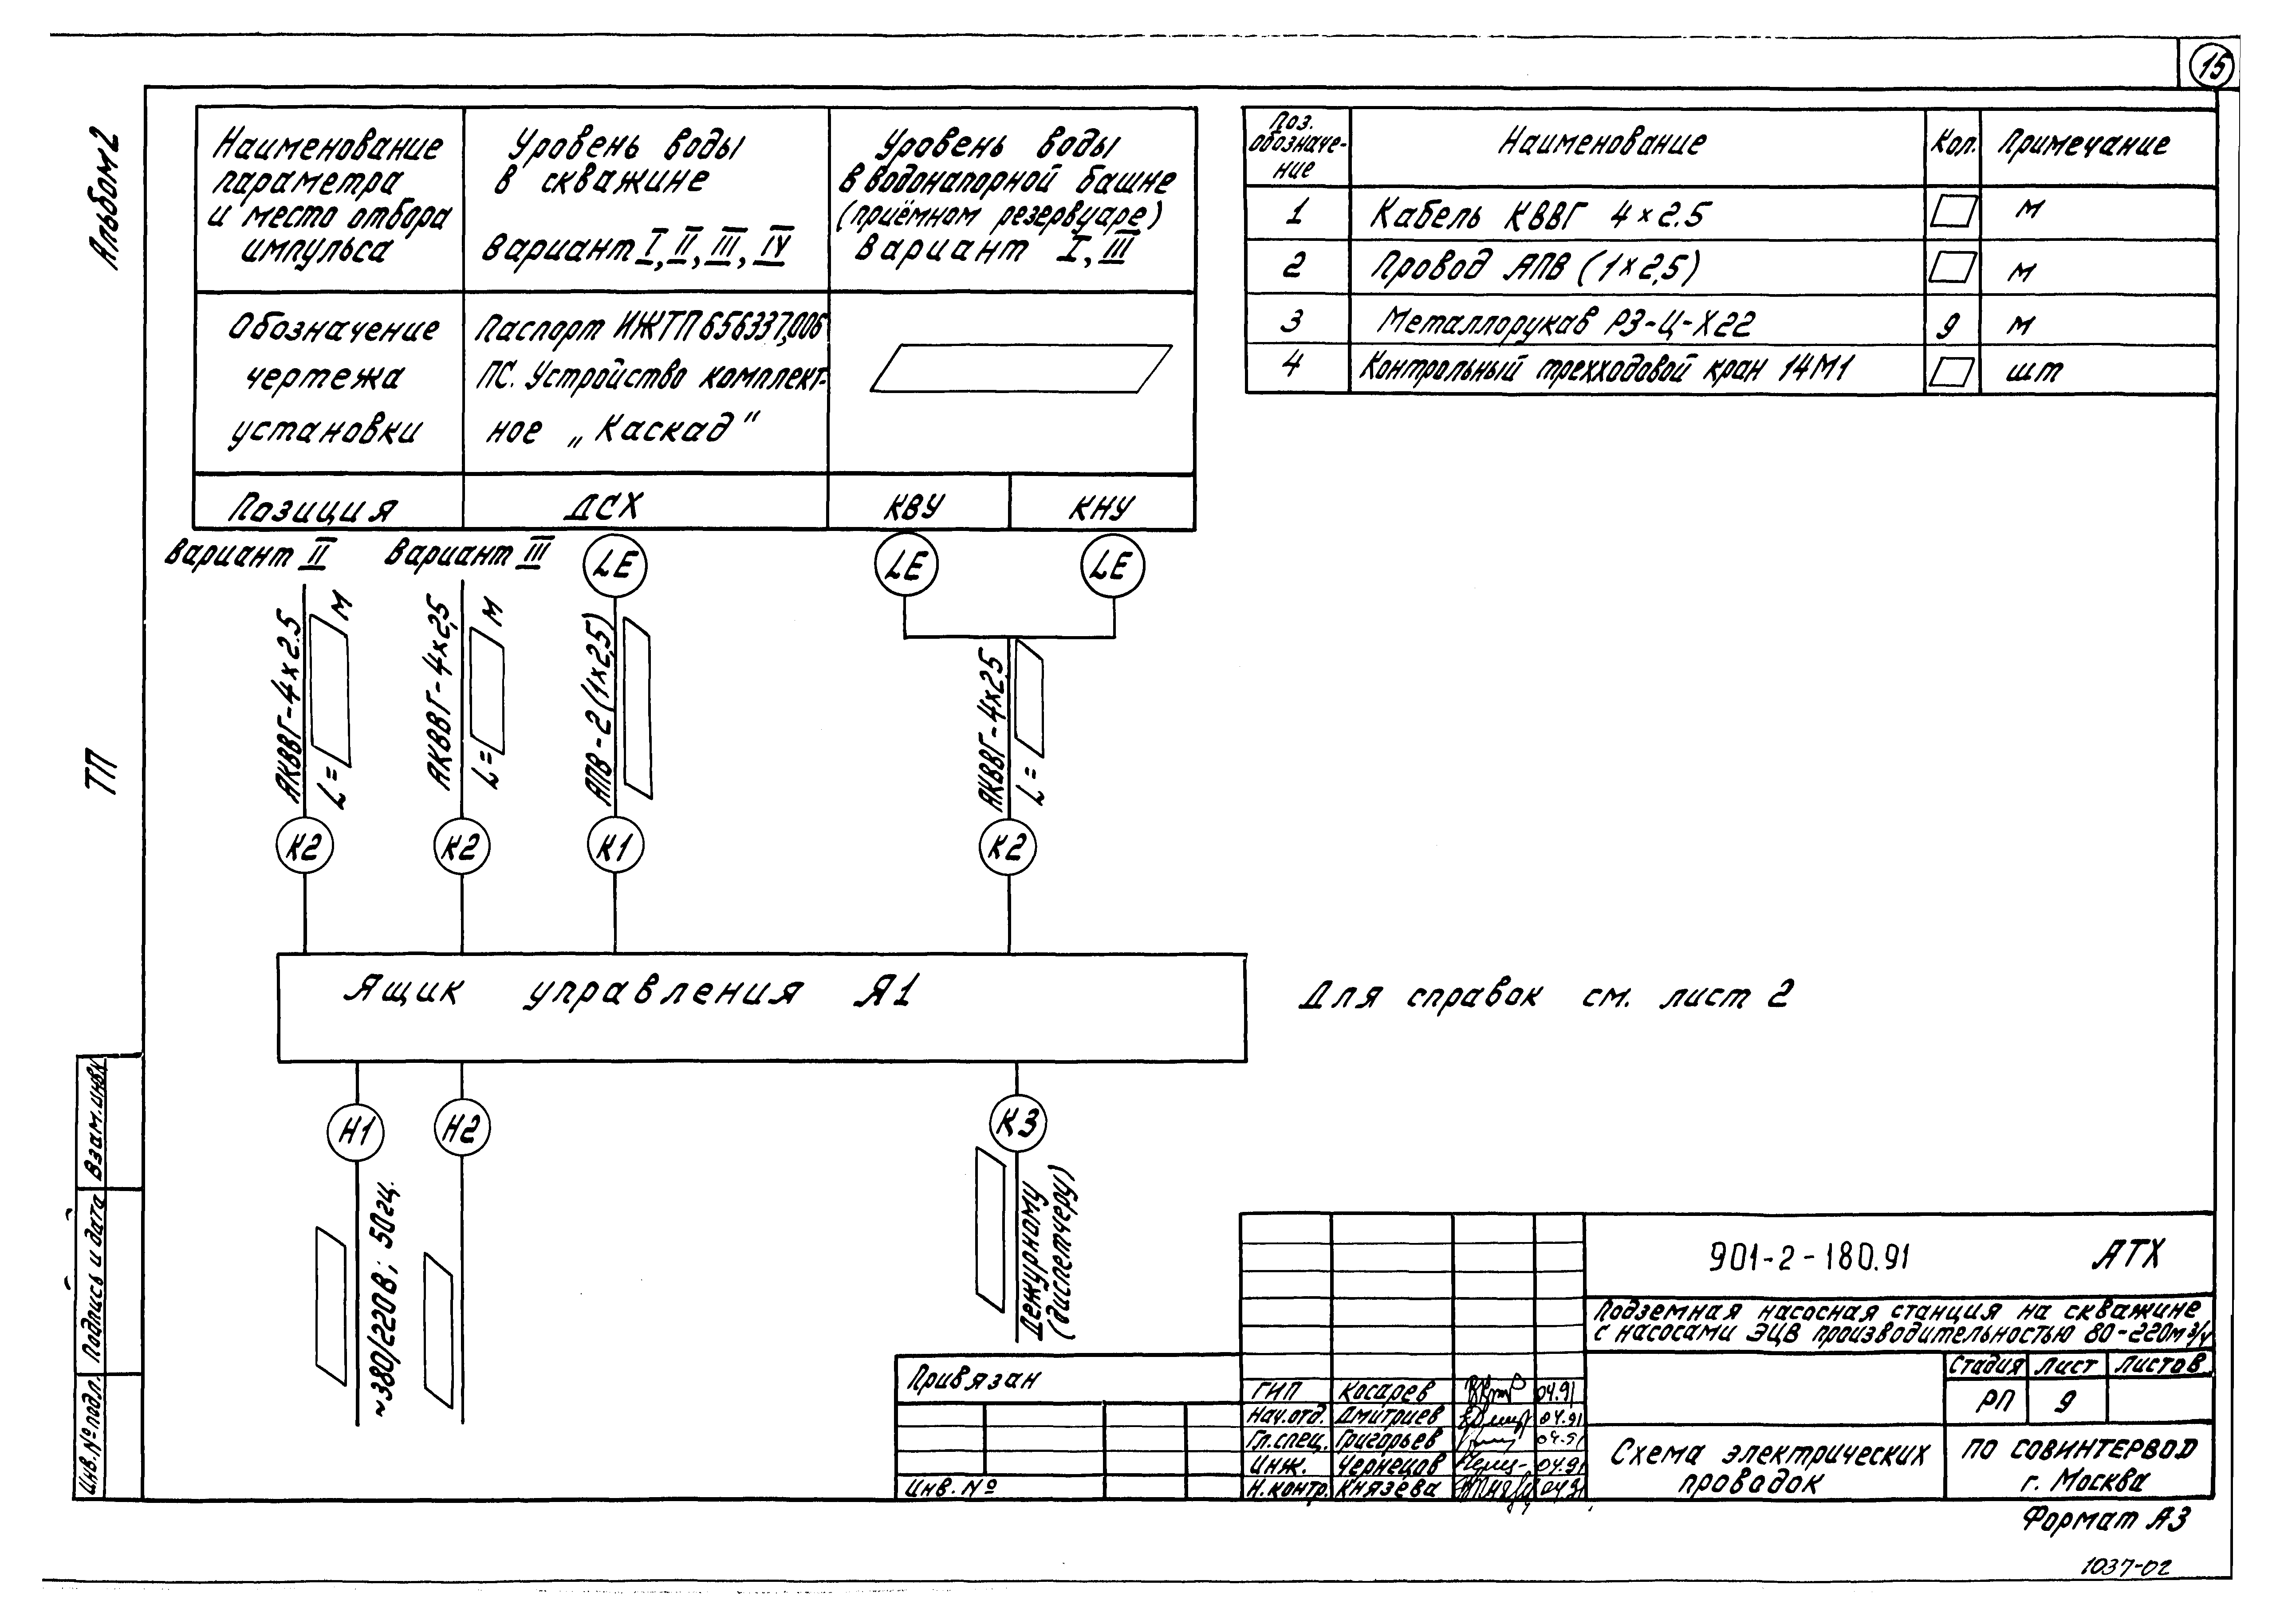 15
Альбом 2
ТП
Наименование
параметра
и место отбора
импульса
Уровень воды
в скважине
Вариант I, II, III, IV
Уровень воды
в водонапорной башне
(приёмном резервуаре)
Вариант I, III
Обозначение
чертежа
установки
Паспорт ИЖТП 656337,006
ПС. Устройство комплект-
ное „Каскад“
Позиция
ДСХ
КВУ
КНУ
Поз.
обозначе-
ние
Наименование
Кол.
Примечание
1 Кабель КВВГ 4×2.5 м
2 Провод АПВ (1×2,5) м
3 Металлорукав РЗ-Ц-Х22 9 м
4 Контрольный трехходовой кран 14М1 шт
Вариант II
Вариант III
LE
LE
LE
АКВВГ-4×2.5
L= м
АКВВГ-4×2,5
L= м
АПВ-2(1×2,5)
АКВВГ-4×2,5
L=
К2
К2
К1
К2
Ящик управления Я1
Для справок см. лист 2
Н1
Н2
К3
~380/220В; 50гц.
Дежурному
(диспетчеру)
Взам.инв.№
Подпись и дата
Инв.№ подл.
Привязан
Инв. №
ГИП Косарев 04.91
Нач.отд. Дмитриев 04.91
Гл.спец. Григорьев 04.91
Инж. Чернецов 04.91
Н.контр. Князева 04.91
901-2-180.91 АТХ
Подземная насосная станция на скважине
с насосами ЭЦВ производительностью 80-220м3/ч
Стадия Лист Листов
РП 9
Схема электрических
проводок
ПО СОВИНТЕРВОД
г. Москва
Формат А3
1037-02